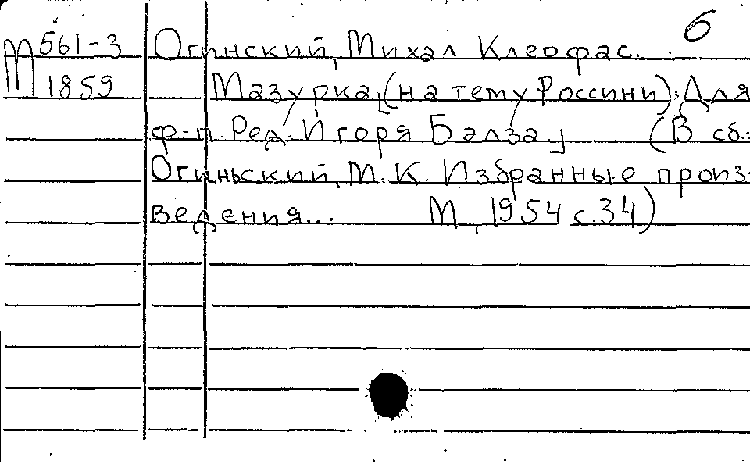 б
М 561-3 Огинский, Михал Клеофас.
М 1859 Мазурка, (на тему Россини). Для
ф-п. Ред. Игоря Бэлза, (В сб.:
Огиньский, М. К. Избранные произ-
ведения... М., 1954 с. 34)